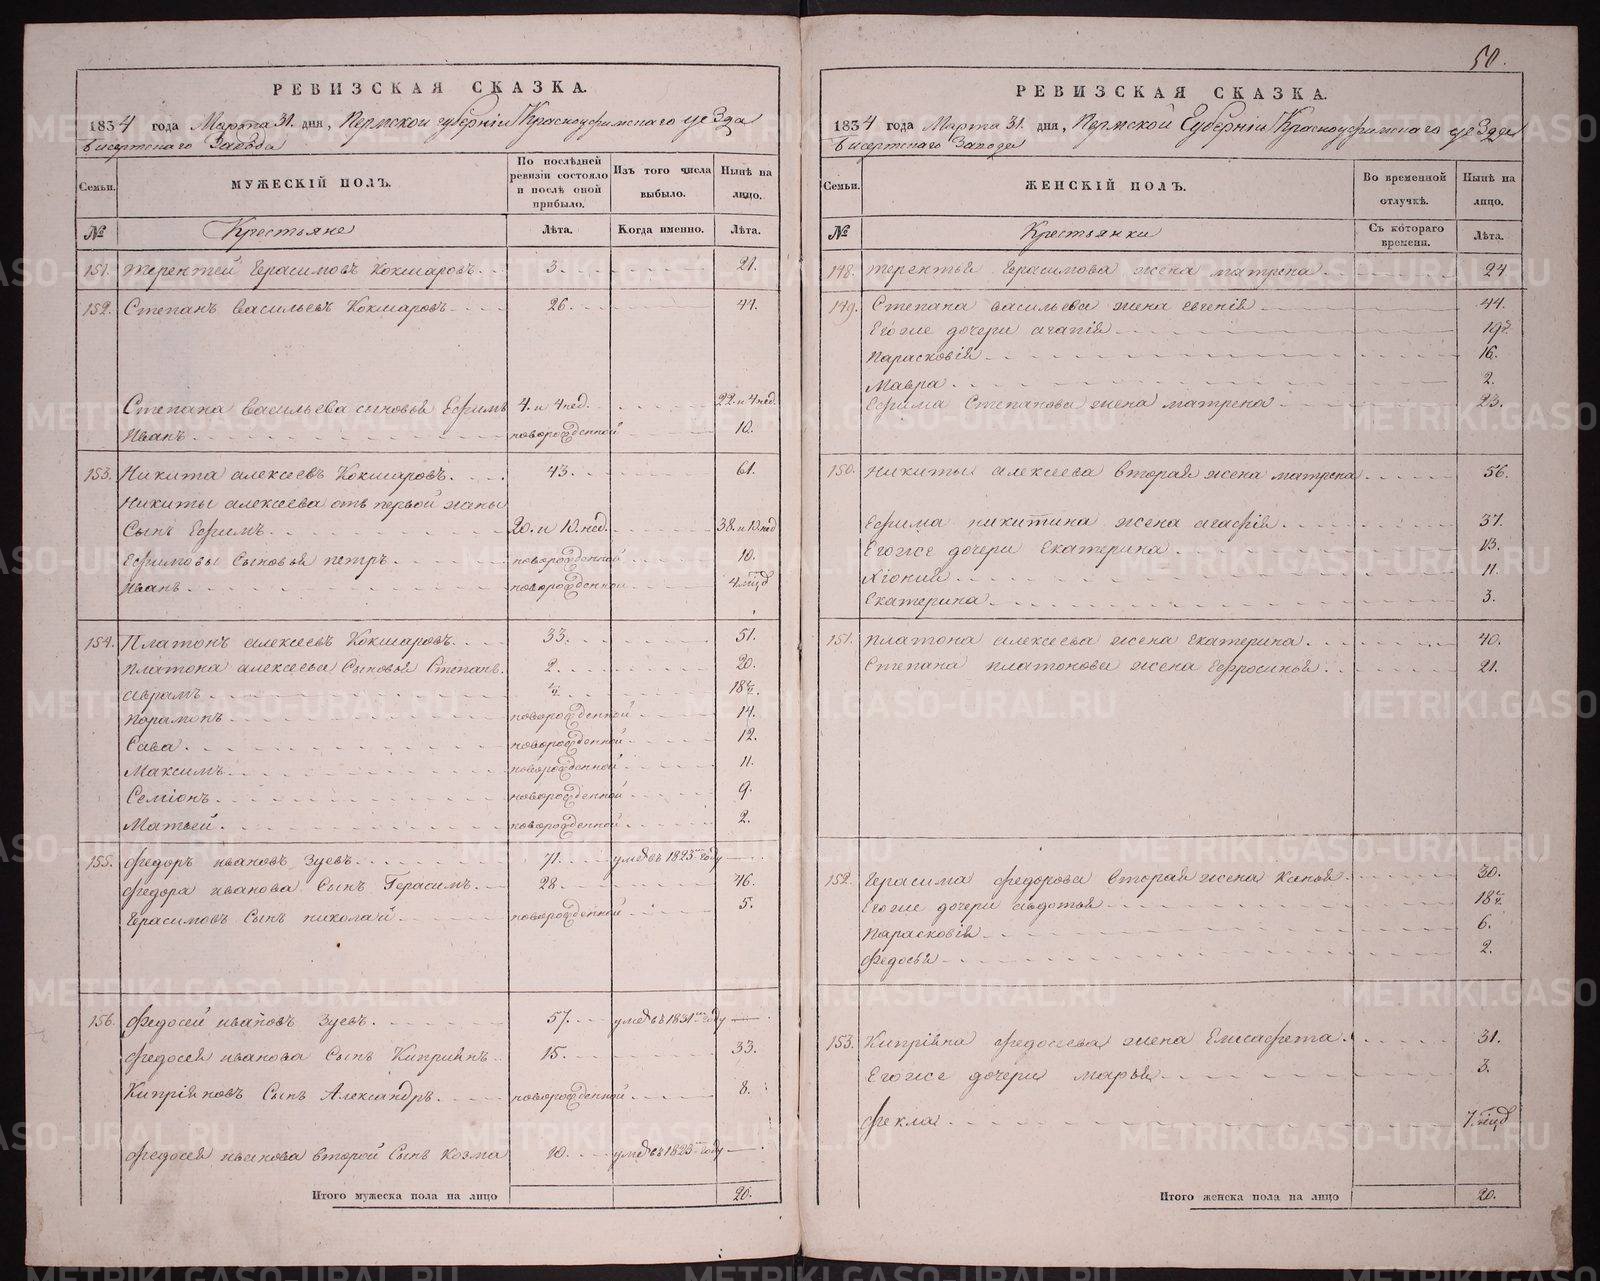 РЕВИЗСКАЯ СКАЗКА.
1834 года Марта 31. дня, Пермской губерніи Красноуфимскаго уезда
Бисертскаго Завода
Семьи. МУЖЕСКІЙ ПОЛЪ. По послѣдней ревизіи состояло и послѣ оной прибыло. Изъ того числа выбыло. Нынѣ на лицо.
№ Крестьяне Лѣта. Когда именно. Лѣта.
151. Терентей Герасимовъ Кокшаровъ 3. 21.
152. Степанъ Васильевъ Кокшаровъ 26. 44.
Степана Васильева сыновья Ефимъ 4. и 4 нед. 22. и 4 нед.
Иванъ новорожденной 10.
153. Никита Алексеевъ Кокшаровъ. 43. 61.
Никиты Алексеева отъ первой жаны
Сынъ Ефимъ. 20. и 10. нед. 38. и 10. нед
Ефимовы Сыновья петръ новорожденной 10.
Иванъ новорожденной 4 мцд
154. Платонъ Алексеевъ Кокшаровъ 33. 51.
Платона Алексеева Сыновья Степанъ. 2. 20.
Аврамъ
Парамонъ новорожденной 14.
Сава. новорожденной 12.
Максимъ новорожденной 11.
Семіонъ. новорожденной 9.
Матвей новорожденной 2.
155. Федоръ Ивановъ Зуевъ. 71. умре въ 1823 году
Федора Иванова Сынъ Герасимъ. 28. 46.
Герасимовъ Сынъ николай новорожденной 5.
156. Федосей Ивановъ Зуевъ. 57. умре въ 1831 году
Федосея Иванова Сынъ Киприянъ 15. 33.
Кипріяновъ Сынъ Александръ. новорожденной 8.
Федосея Иванова второй Сынъ Козма 10. умре въ 1823 году
Итого мужеска пола на лицо 20.
50.
РЕВИЗСКАЯ СКАЗКА.
1834 года Марта 31. дня, Пермской Губерніи Красноуфимскаго уезда
Бисертскаго Завода
Семьи. ЖЕНСКІЙ ПОЛЪ. Во временной отлучкѣ. Нынѣ на лицо.
№ Крестьянки Съ котораго времени. Лѣта.
148. Терентья Герасимова жена матрена 24
149. Степана Васильева жена евгенія 44.
Егоже дочери агапія
Парасковія 16.
Мавра 2.
Ефима Степанова жена матрена 23.
150. Никиты Алексеева вторая жена матрена 56.
Ефима никитина жена агафія 37.
Егоже дочери Екатерина 13.
Хіонія 11.
Екатерина 3.
151. Платона Алексеева жена Екатерина. 40.
Степана платонова жена Ефросинья 21.
152. Герасима Федорова вторая жена 30.
Егоже дочери авдотья
Парасковія 6.
Федосья 2.
153. Кипріяна Федосеева жена Елисафета. 31.
Егоже дочери марья 3.
Фекла 7 мцд
Итого женска пола на лицо 20.
METRIKI.GASO-URAL.RU